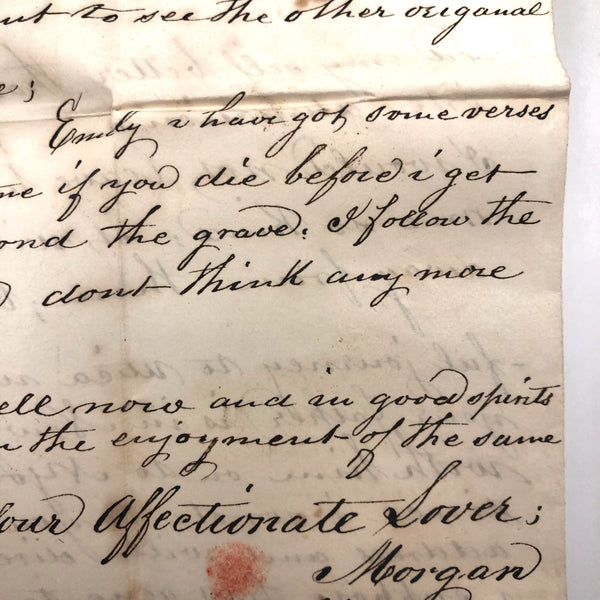 to see the other origanal
Emily i have got some verses
me if you die before i get
ond the grave: I follow the
dont think any more
ell now and in good spirits
the enjoyment of the same
Your Affectionate Lover;
Morgan